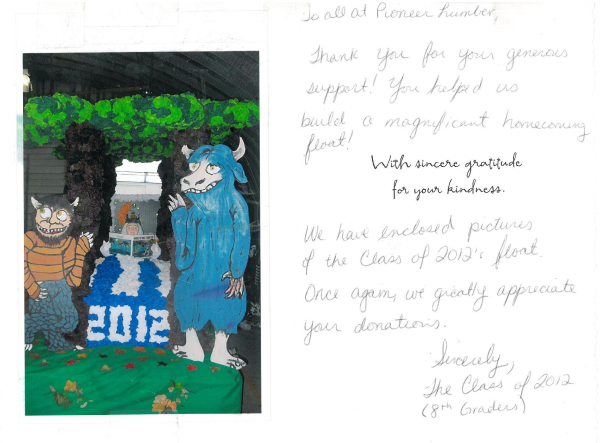 To all at Pioneer Lumber,
Thank you for your generous
support! You helped us
build a magnificant homecoming
float!
With sincere gratitude
for your kindness.
We have enclosed pictures
of the Class of 2012's float.
Once again, we greatly appreciate
your donations.
Sincerely,
The Class of 2012
(8th Graders)
2012